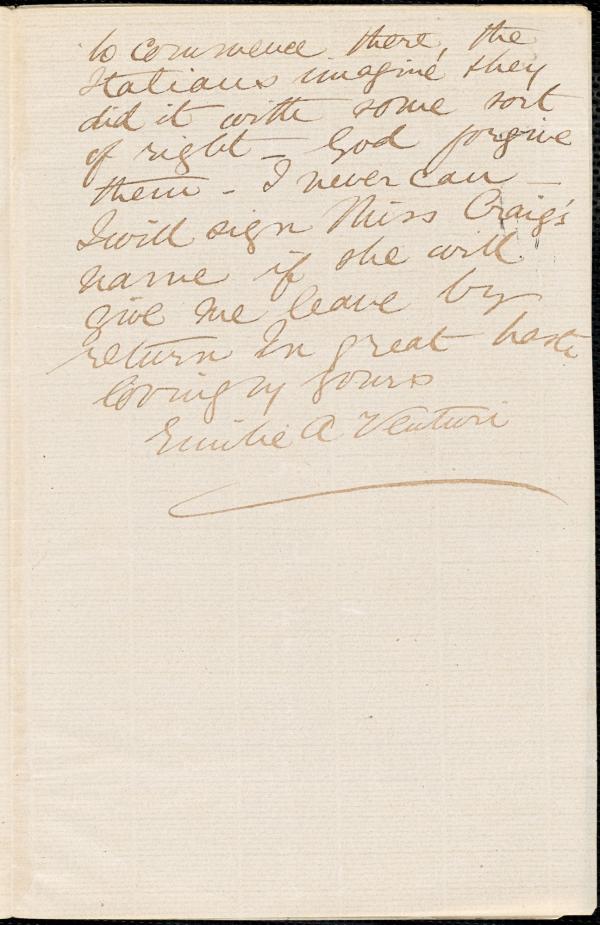 to commence there, the
Italians imagine they
did it with some sort
of right – God forgive
them – I never can –
I will sign Miss Craig's
name if she will
give me leave by
return In great haste
lovingly yours
Emilie A Venturi